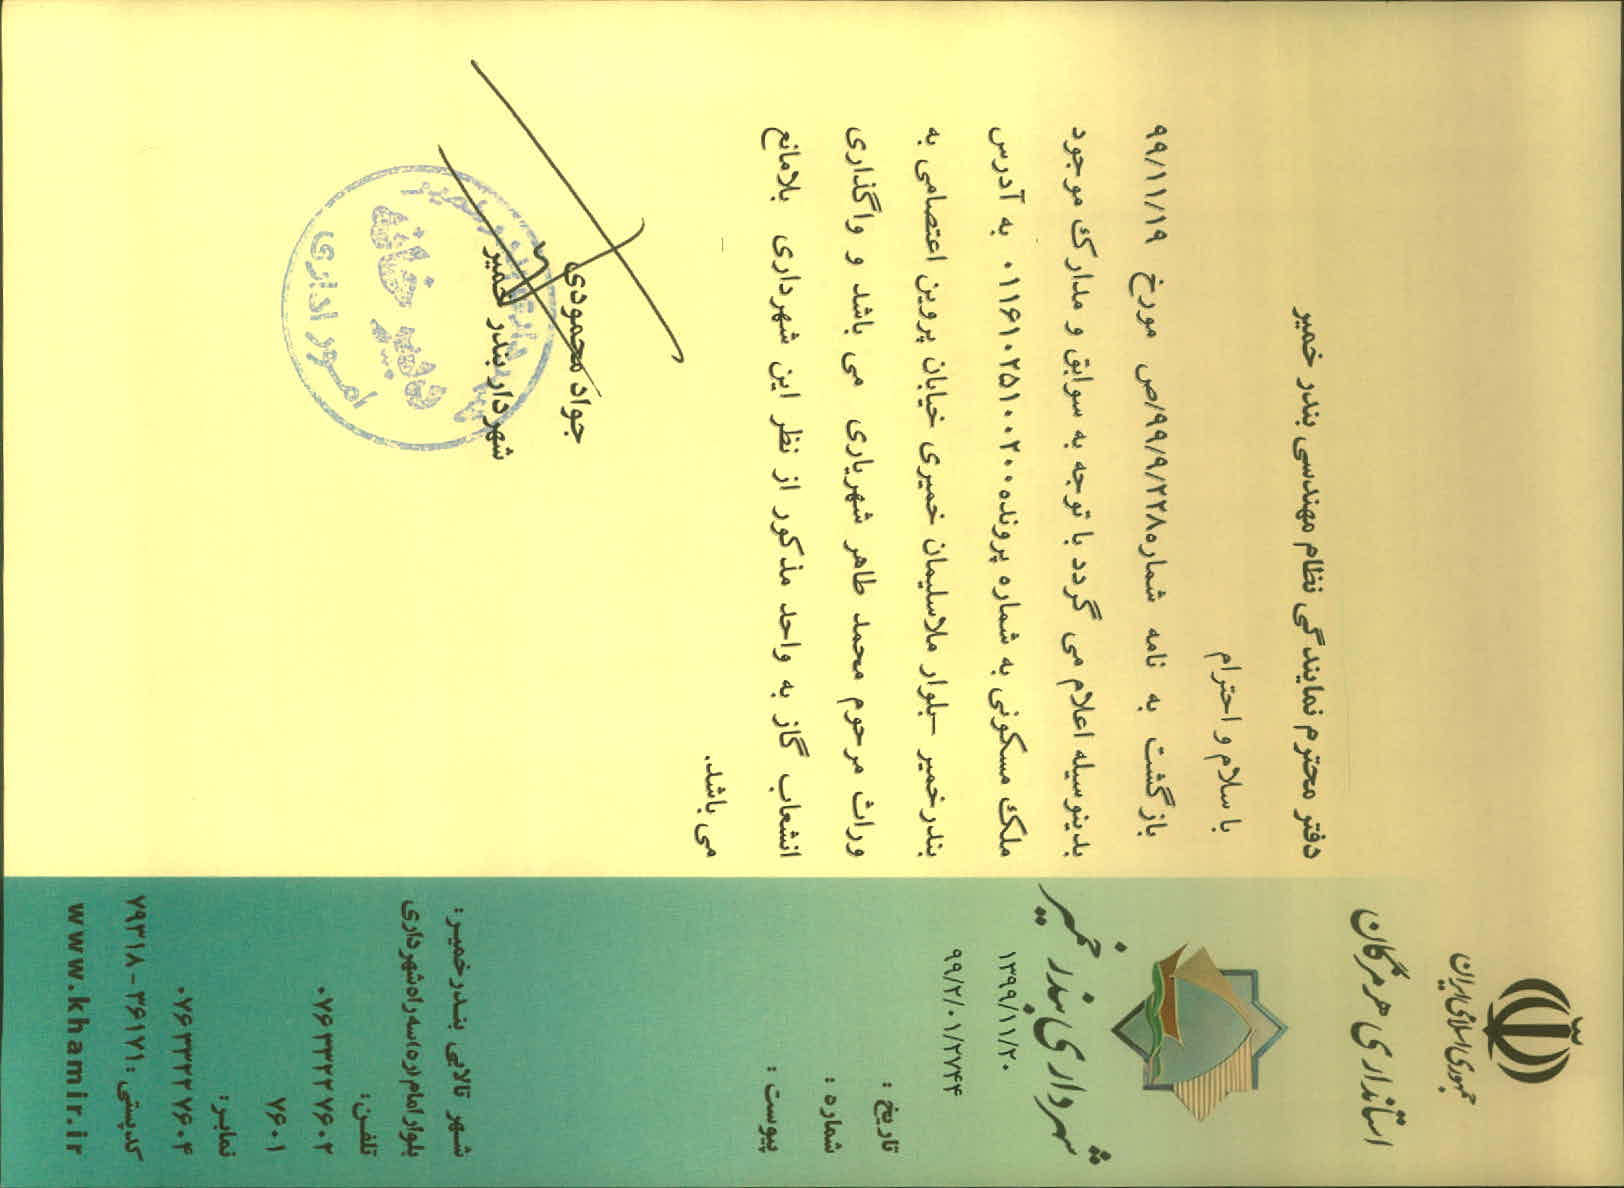 جمهوری اسلامی ایران
استانداری هرمزگان
شهرداری بندر خمیر
۱۳۹۹/۱۱/۲۰
۹۹/۲/۰۱/۲۷۴۴
تاریخ :
شماره :
پیوست :
دفتر محترم نمایندگی نظام مهندسی بندر خمیر
با سلام و احترام
بازگشت به نامه شماره۹۹/۹/۲۲۸/ص مورخ ۹۹/۱۱/۱۹
بدینوسیله اعلام می گردد با توجه به سوابق و مدارک موجود
ملک مسکونی به شماره پرونده۰۱۱۶۱۰۲۵۱۰۰۲۰۰ به آدرس
بندرخمیر –بلوار ملاسلیمان خمیری خیابان پروین اعتصامی به
وراث مرحوم محمد طاهر شهریاری می باشد و واگذاری
انشعاب گاز به واحد مذکور از نظر این شهرداری بلامانع
می باشد.
جواد محمودی
شهردار بندر خمیر
دبیر خانه
امور اداری
شهر تالابی بندرخمیر:
بلوار امام(ره)سه راه شهرداری
تلفن:
۰۷۶۳۳۲۲۷۶۰۲
۷۶۰۱
نمابر:
۰۷۶۳۳۲۲۷۶۰۴
کدپستی : ۳۶۱۷۱-۷۹۳۱۸
www.khamir.ir